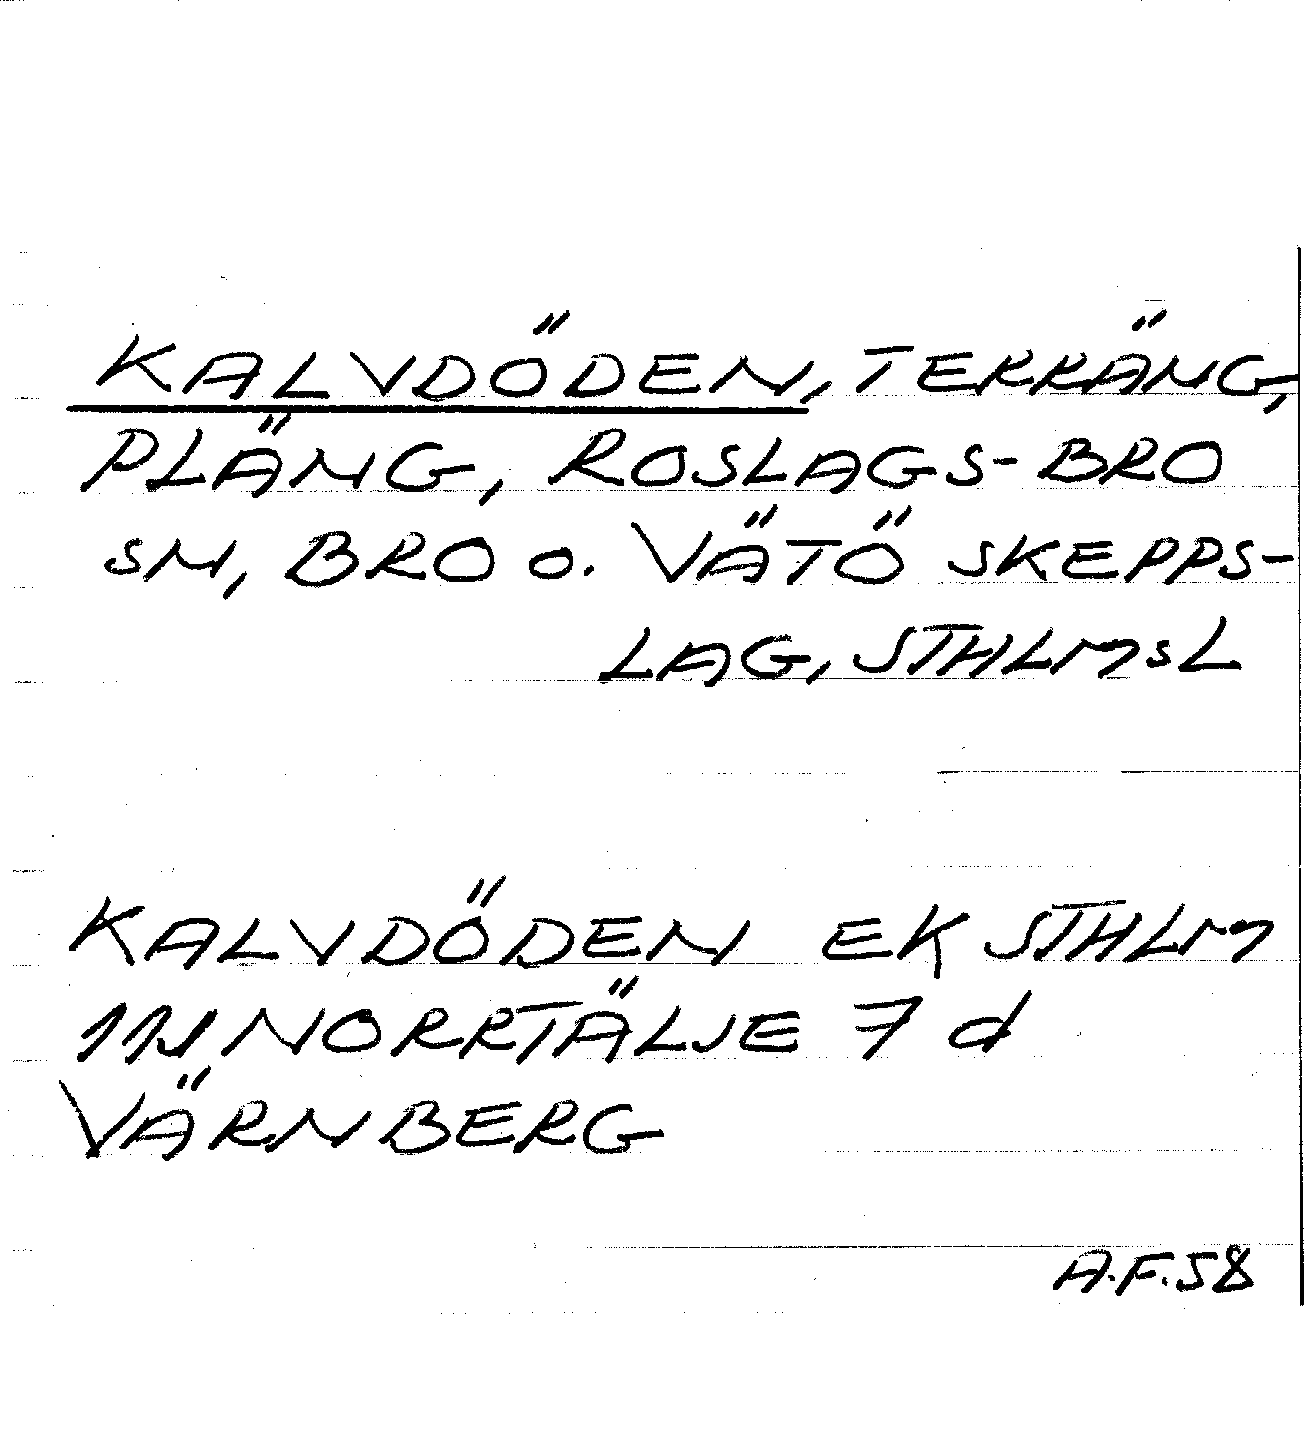 KALVDÖDEN, TERRÄNG,
PLÄNG, ROSLAGS-BRO
SN, BRO O. VÄTÖ SKEPPS-
LAG, STHLMSL
KALVDÖDEN EK STHLM
NORRTÄLJE 7 d
VÄRNBERG
A.F.58